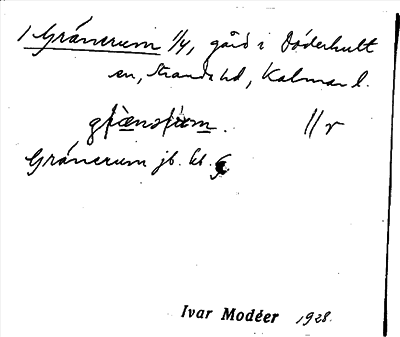 1 Gråncrum 1/4, gård i Döderhult
sn, Stranda hd, Kalmar l.
grænsrum. //r
Gråncrum jb. kb.
Ivar Modéer 1928.